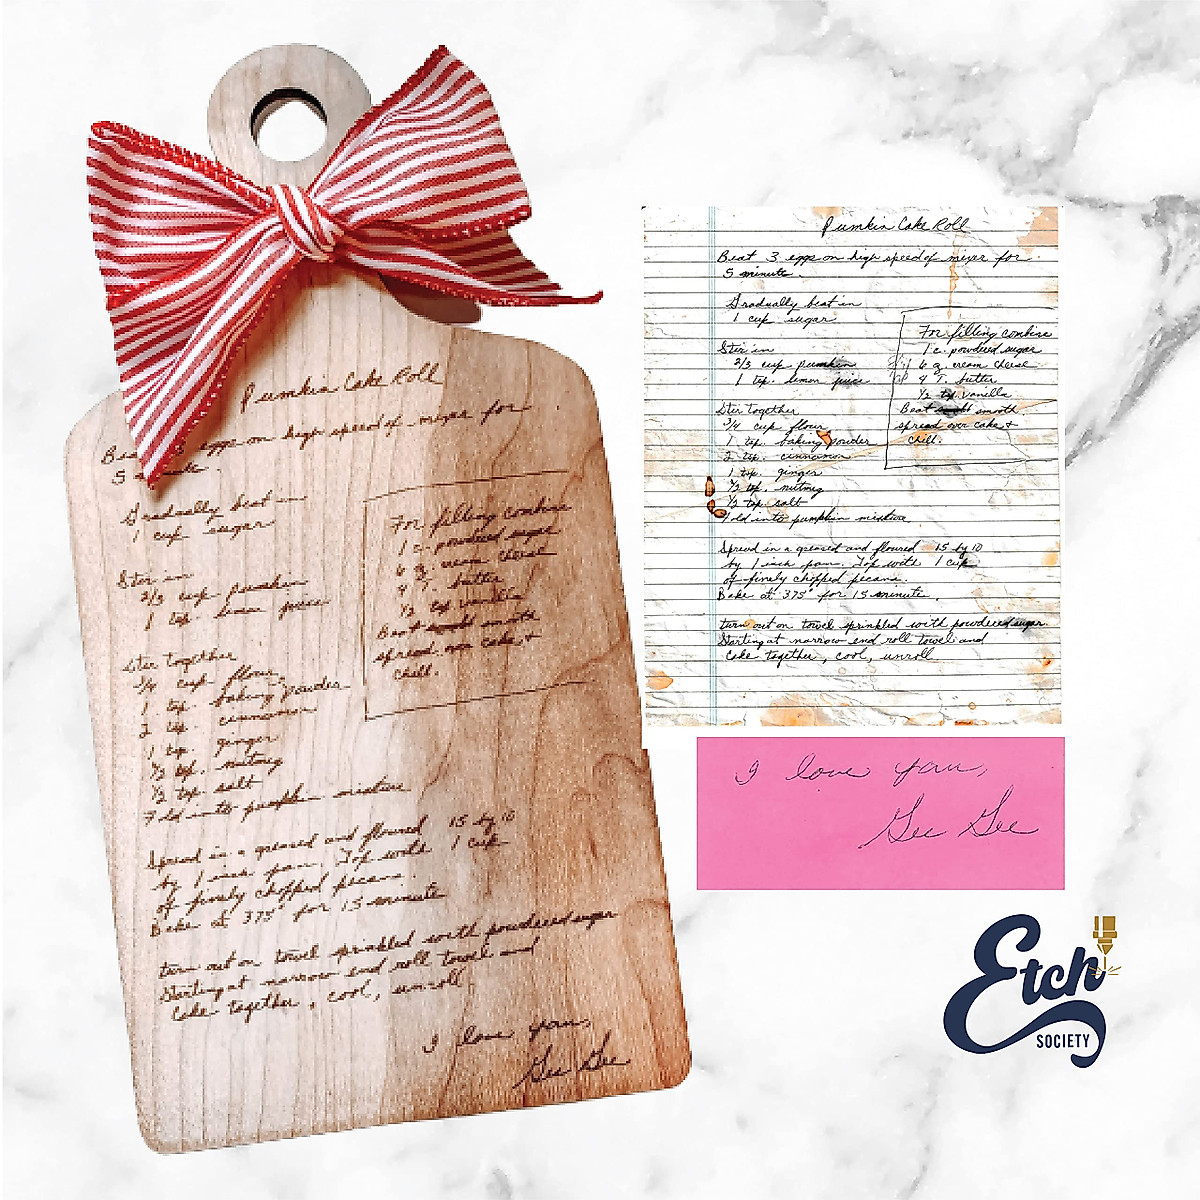 Pumkin Cake Roll
Beat 3 eggs on high speed of mixer for
5 minute
Gradually beat in
1 cup sugar
Stir in
2/3 cup pumkin
1 tsp. lemon juice
Stir together
3/4 cup flour
1 tsp. baking powder
2 tsp. cinnamon
1 tsp. ginger
1/2 tsp. nutmeg
1/2 tsp. salt
Fold into pumpkin mixture
For filling combine
1 c. powdered sugar
6 oz. cream cheese
4 T. butter
1/2 tsp vanilla
Beat smooth
spread over cake +
chill.
Spread in a greased and floured 15 by 10
by 1 inch pan. Top with 1 cup
of finely chopped pecans.
Bake at 375° for 15 minute
turn out on towel sprinkled with powdered sugar
Starting at narrow end roll towel and
cake together, cool, unroll
I love you,
Gee Gee
Pumkin Cake Roll
Beat 3 eggs on high speed of mixer for
5 minute.
Gradually beat in
1 cup sugar
Stir in
2/3 cup pumkin
1 tsp. lemon juice
Stir together
3/4 cup flour
1 tsp. baking powder
2 tsp. cinnamon
1 tsp. ginger
1/2 tsp. nutmeg
1/2 tsp. salt
Fold into pumpkin mixture
For filling combine
1 c. powdered sugar
6 oz. cream cheese
4 T. butter
1/2 tsp. vanilla
Beat smooth.
spread over cake +
chill.
Spread in a greased and floured 15 by 10
by 1 inch pan. Top with 1 cup
of finely chopped pecans.
Bake at 375° for 15 minute.
turn out on towel sprinkled with powdered sugar
Starting at narrow end roll towel and
cake together, cool, unroll
I love you,
Gee Gee
Etch
SOCIETY